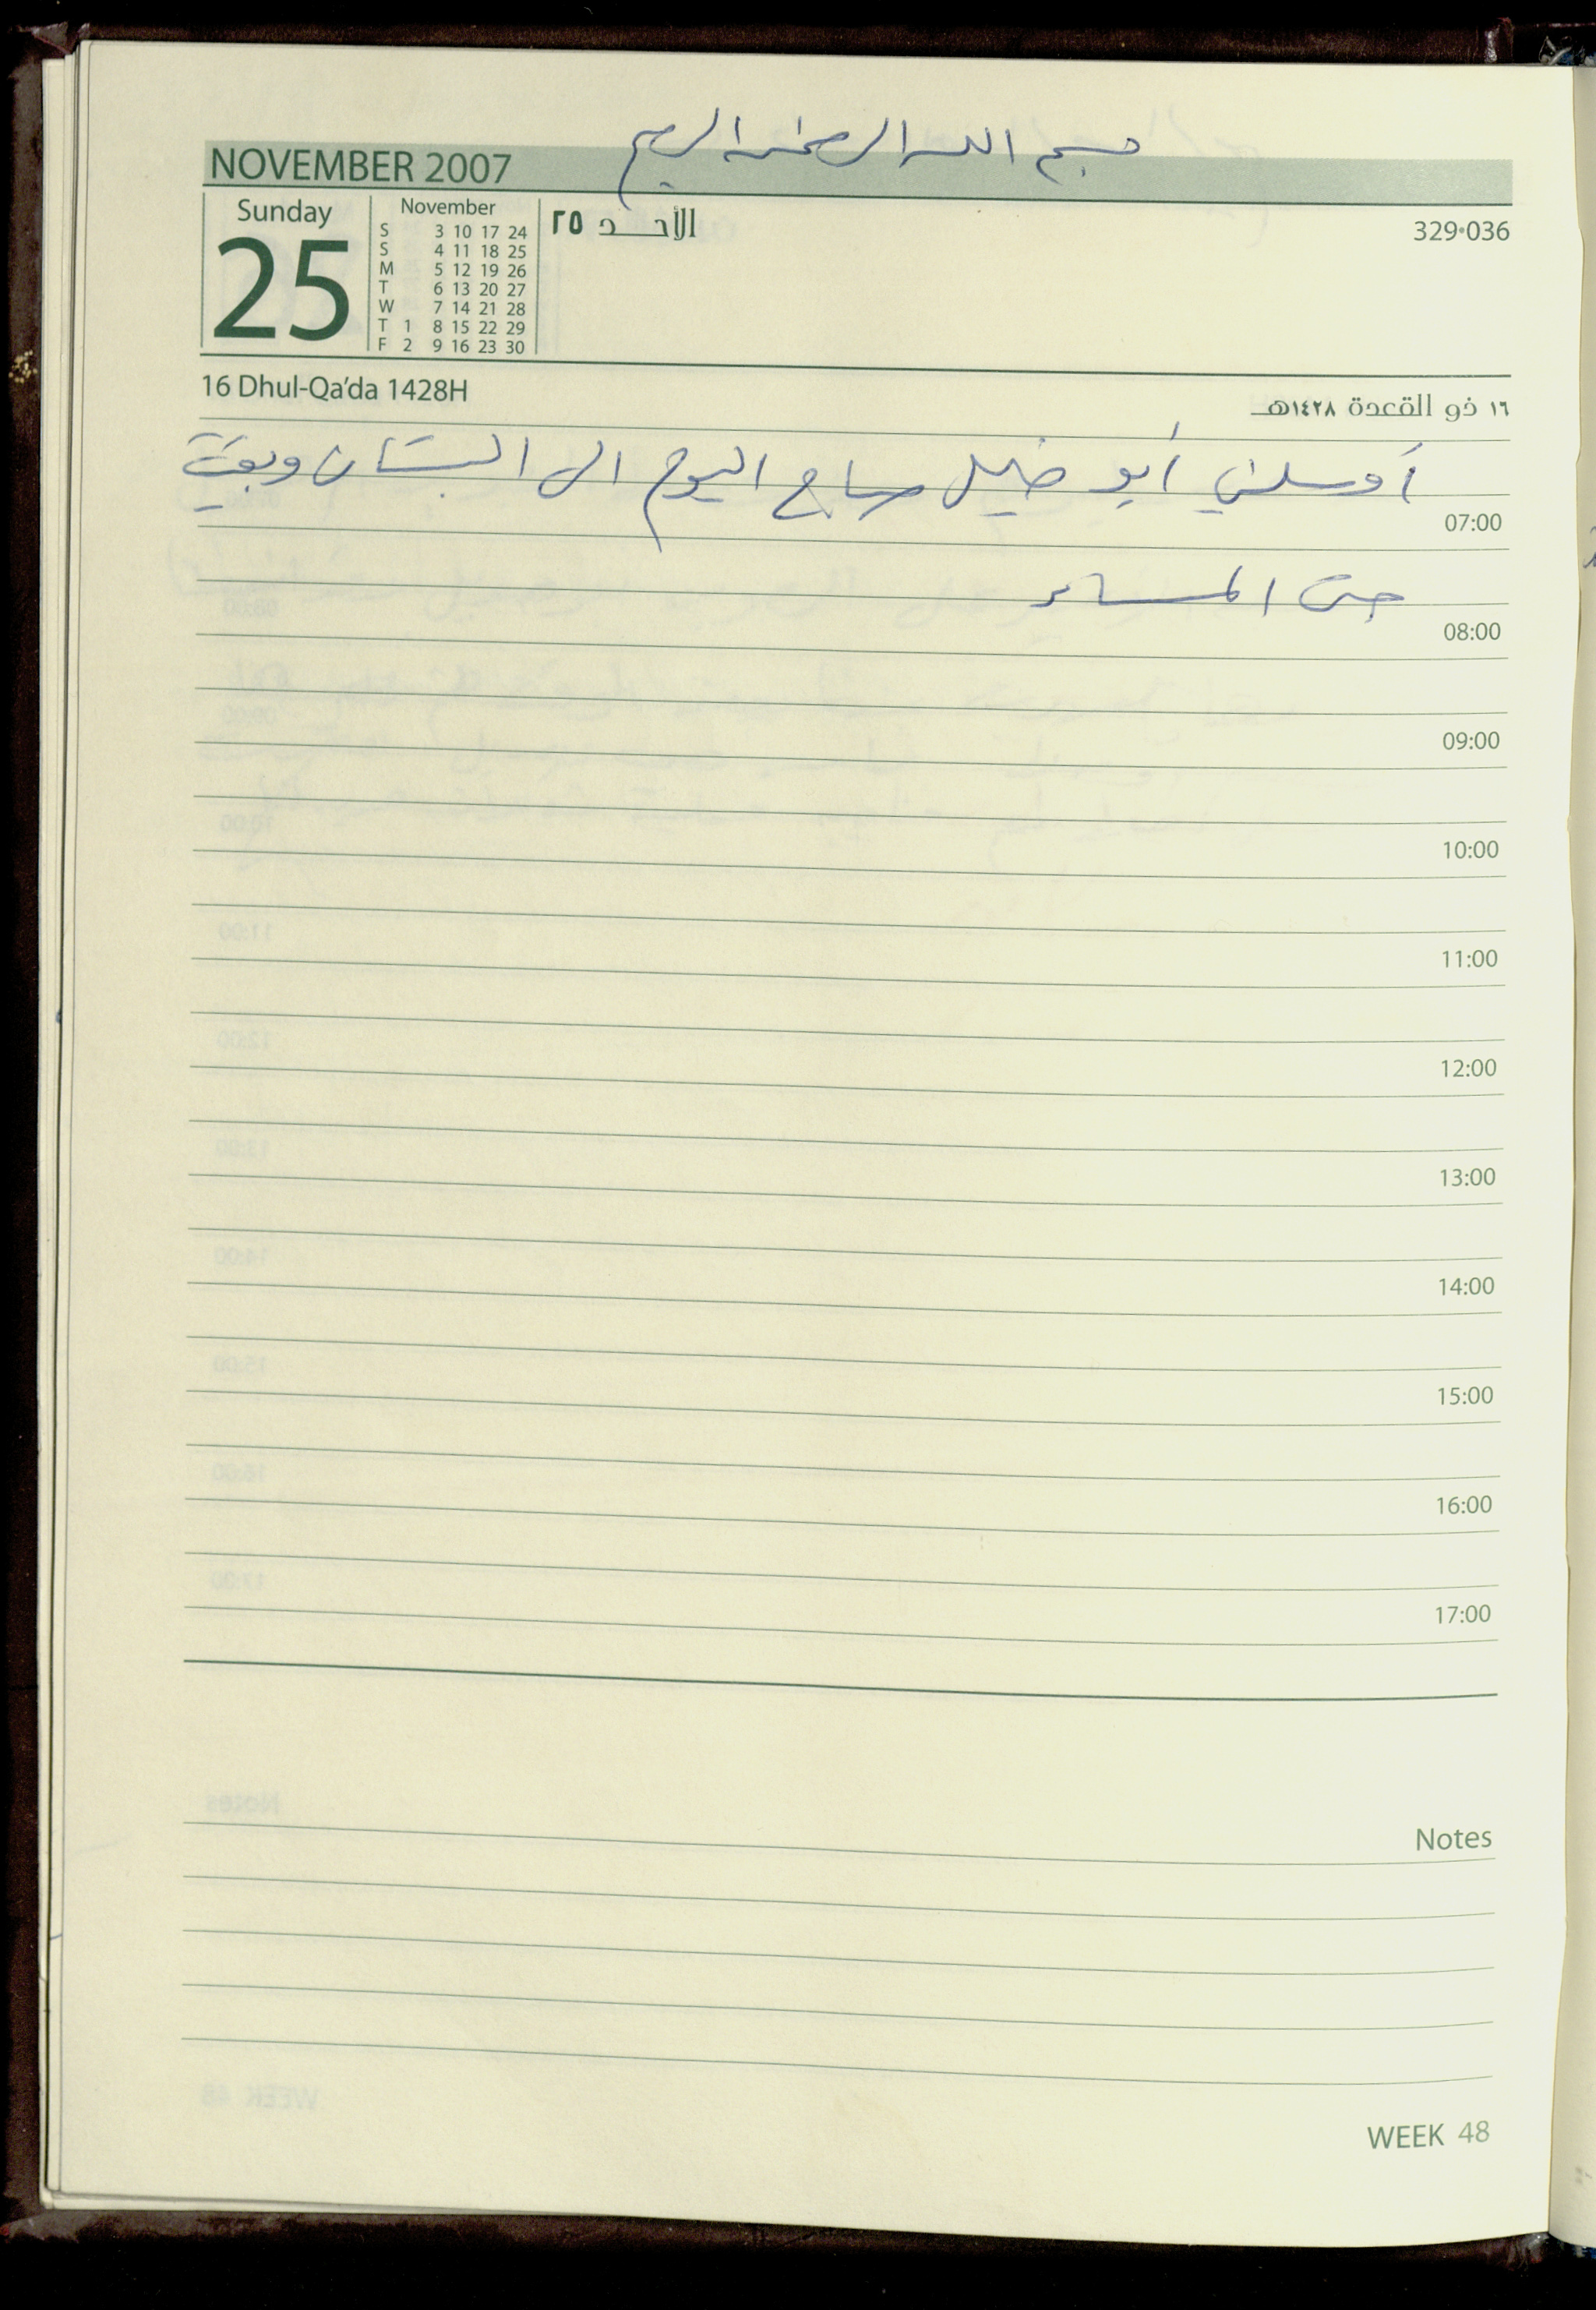 بسم الله الرحمن الرحيم
NOVEMBER 2007
Sunday
25
November
S 3 10 17 24
S 4 11 18 25
M 5 12 19 26
T 6 13 20 27
W 7 14 21 28
T 1 8 15 22 29
F 2 9 16 23 30
الأحد ٢٥
329·036
16 Dhul-Qa'da 1428H
١٦ ذو القعدة ١٤٢٨هـ
أوصلني أبو خليل صباح اليوم الى البستان وبقيت
07:00
حتى المساء
08:00
09:00
10:00
11:00
12:00
13:00
14:00
15:00
16:00
17:00
Notes
WEEK 48